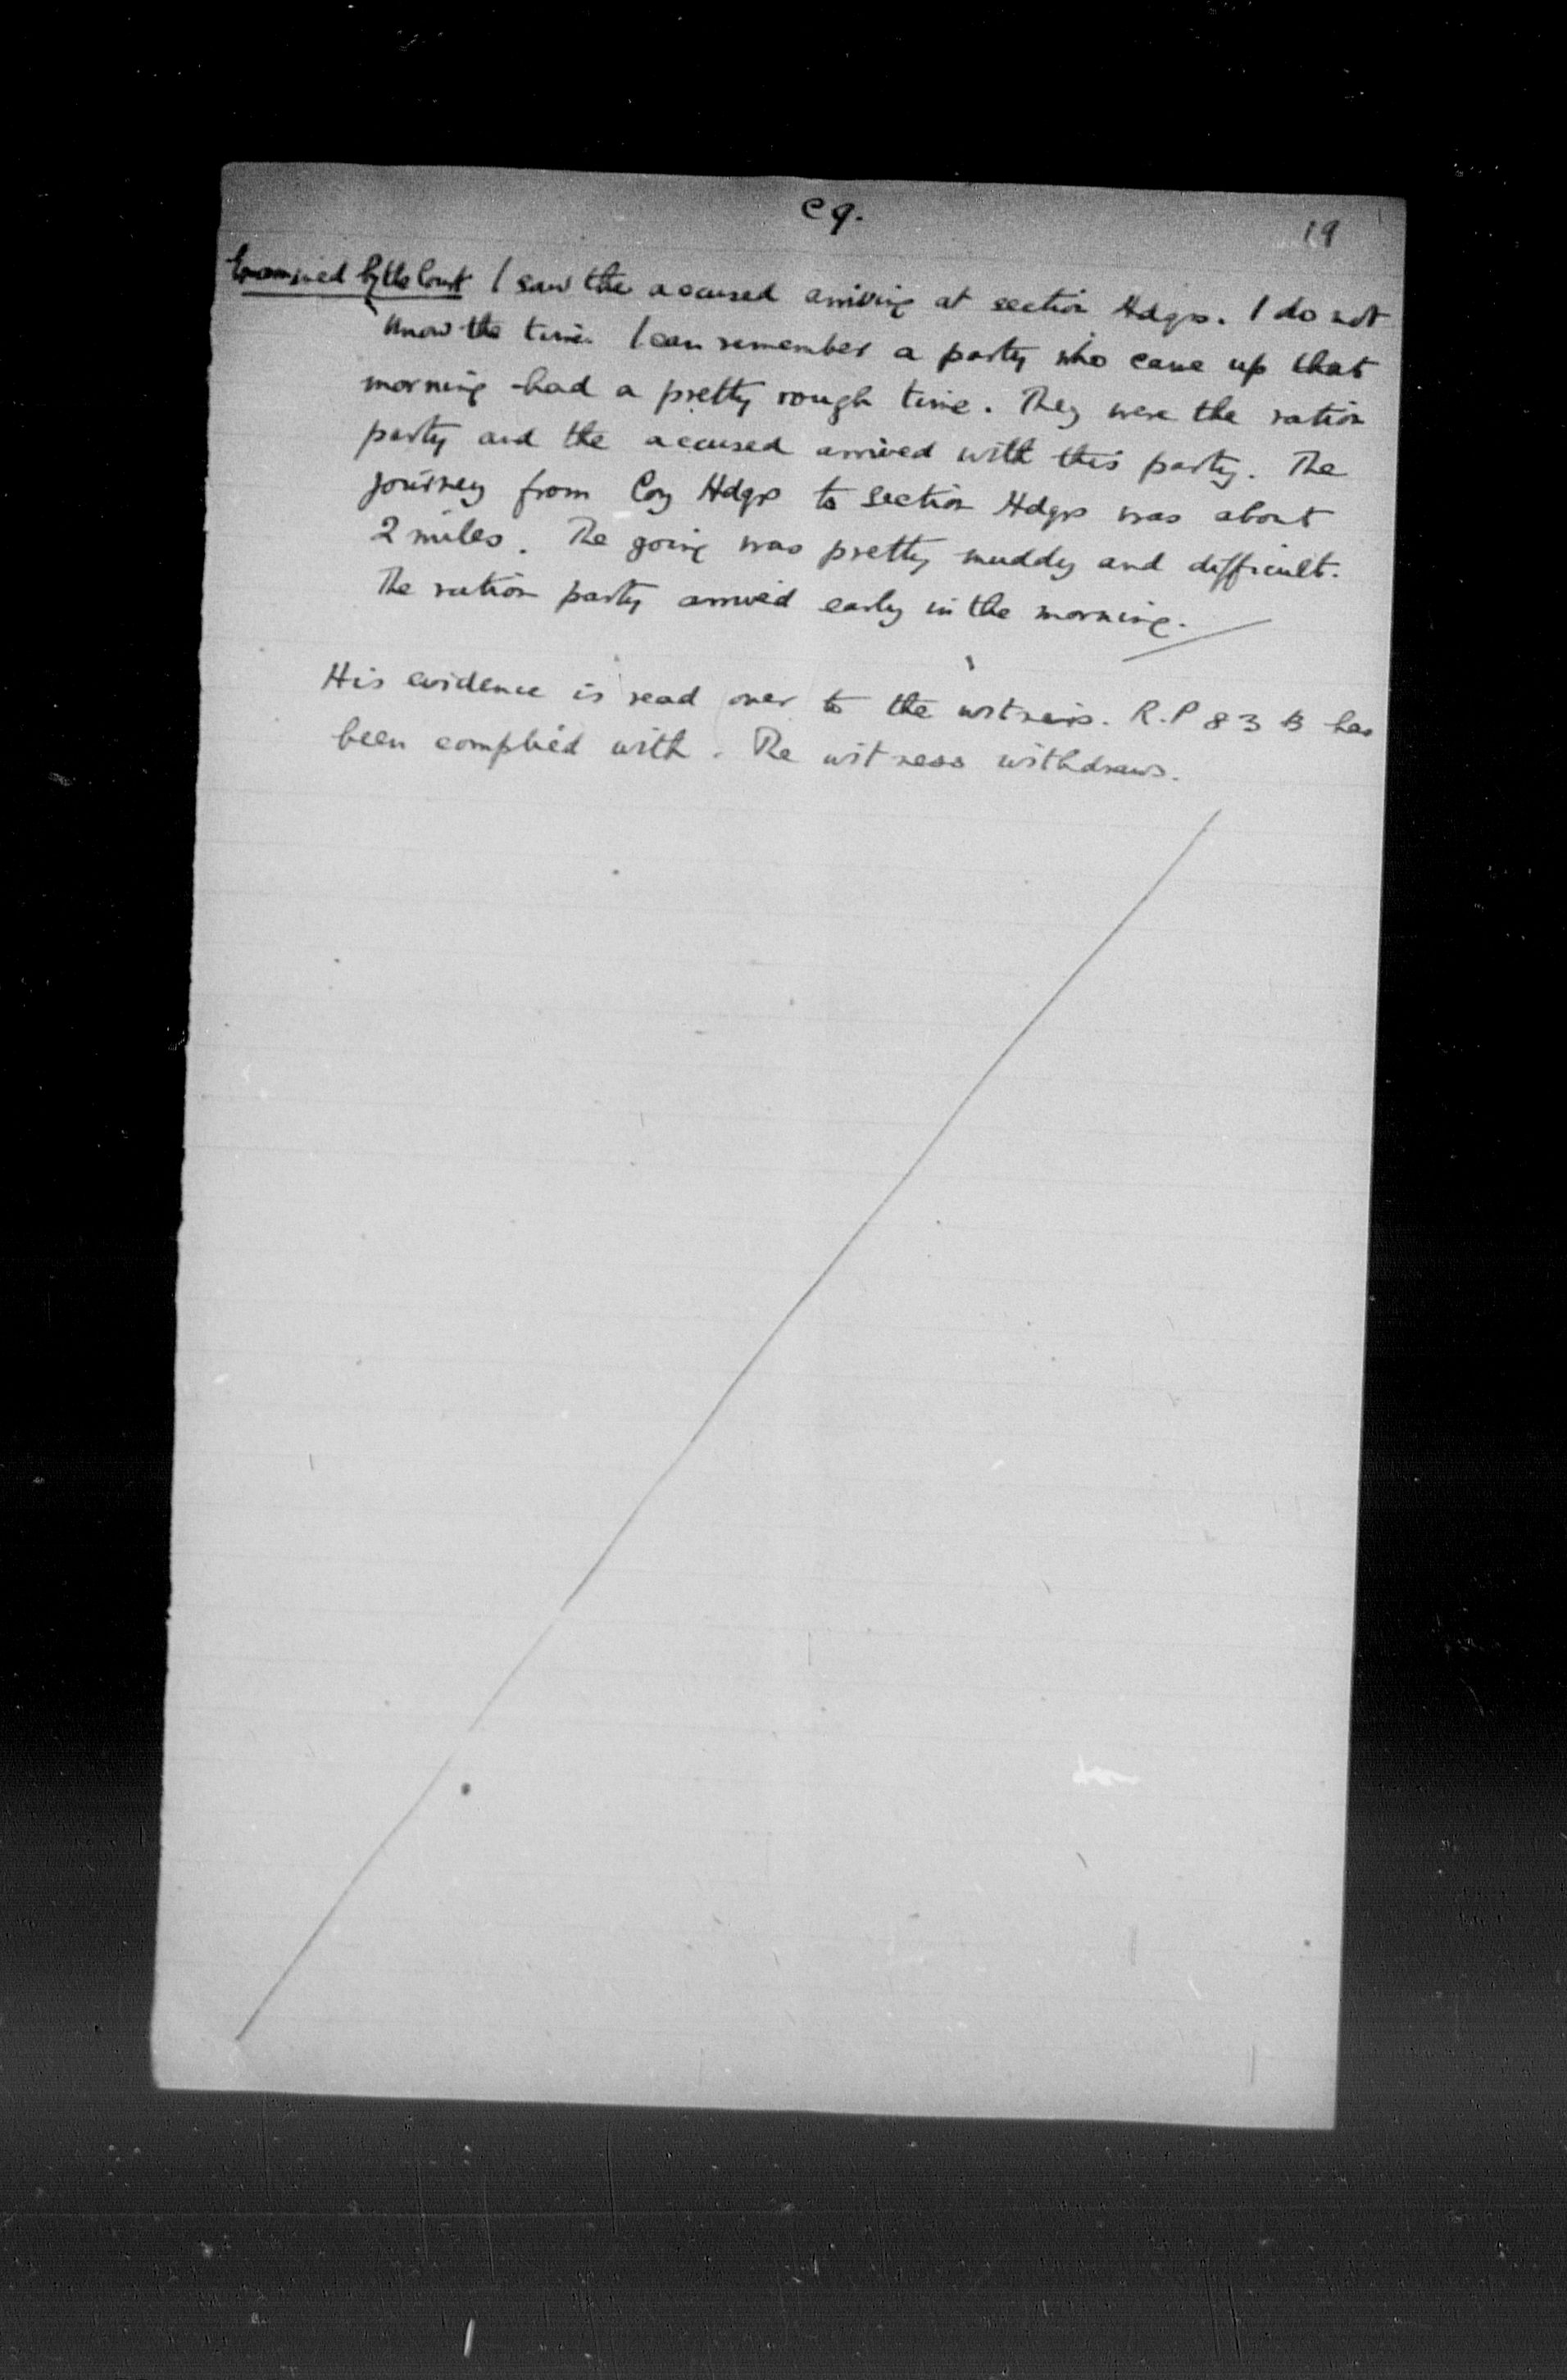 C9.
19
Examined by the Court I saw the accused arriving at section Hdqrs. I do not
know the time. I can remember a party who came up that
morning had a pretty rough time. They were the ration
party and the accused arrived with this party. The
journey from Coy Hdqrs to section Hdqrs was about
2 miles. The going was pretty muddy and difficult.
The ration party arrived early in the morning.
His evidence is read over to the witness. R.P 83 B has
been complied with. The witness withdraws.